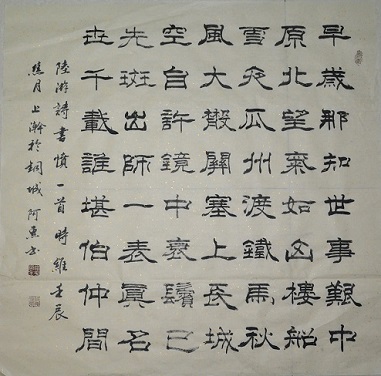 早歲那知世事艱中
原北望氣如山樓船
雪夜瓜州渡鐵馬秋
風大散關塞上長城
空自許鏡中衰鬢已
先斑出師一表眞名
世千載誰堪伯仲間
陸游詩書憤一首時維壬辰
月上瀚於桐城阿书